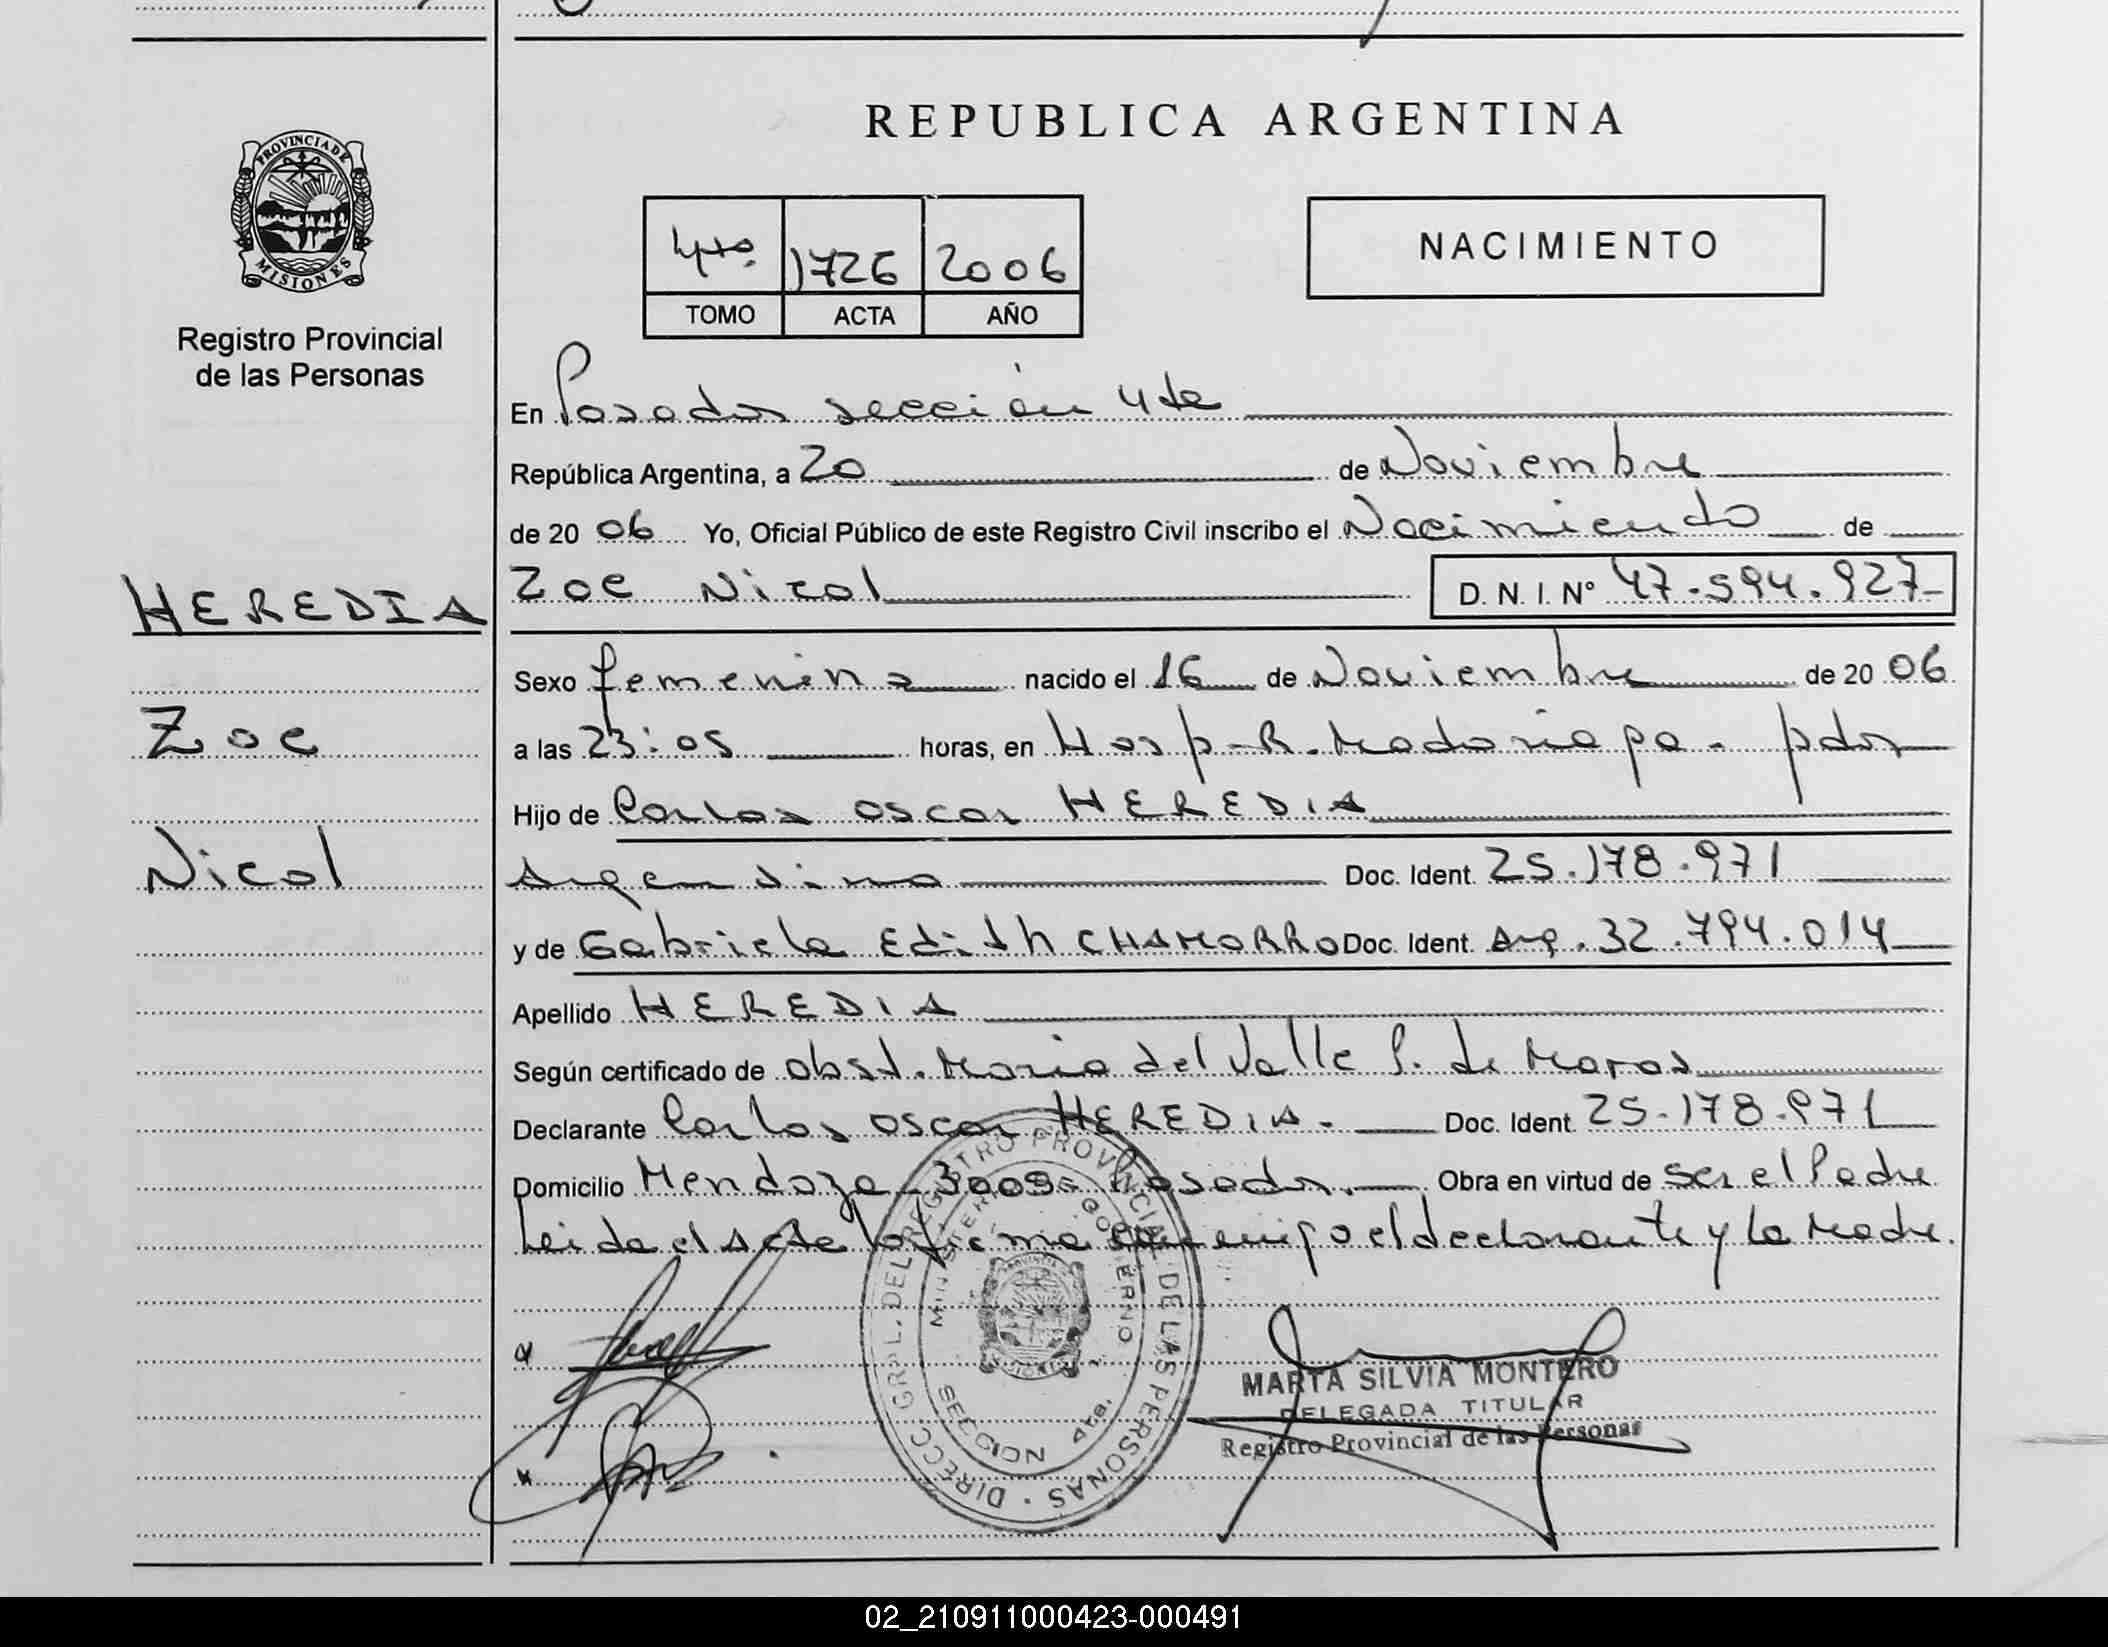 REPUBLICA ARGENTINA
PROVINCIA DE
MISIONES
Registro Provincial
de las Personas
4to. 1726 2006
TOMO ACTA AÑO
NACIMIENTO
En Posadas sección 4ta
República Argentina, a 20 de Noviembre
de 20 06 Yo, Oficial Público de este Registro Civil inscribo el Nacimiento de
HEREDIA
Zoe Nicol D. N. I. Nº 47.594.927
Sexo femenino nacido el 16 de Noviembre de 20 06
Zoe
a las 23:05 horas, en Hosp. R. Madariaga. pdas
Hijo de Carlos Oscar HEREDIA
Nicol
Argentino Doc. Ident. 25.178.971
y de Gabriela Edith CHAMORRO Doc. Ident. Arg. 32.794.014
Apellido HEREDIA
Según certificado de obst. Maria del Valle P. de
Declarante Carlos Oscar HEREDIA. Doc. Ident. 25.178.971
Domicilio Mendoza 3009 Posadas. Obra en virtud de ser el Padre
Leida el Acta la firma conmigo el declarante y la Madre.
DIRECC. GRAL. DEL REGISTRO PROVINCIAL DE LAS PERSONAS
MINISTERIO GOBIERNO
SECCION 4ta.
MARTA SILVIA MONTERO
DELEGADA TITULAR
Registro Provincial de las Personas
02_210911000423-000491